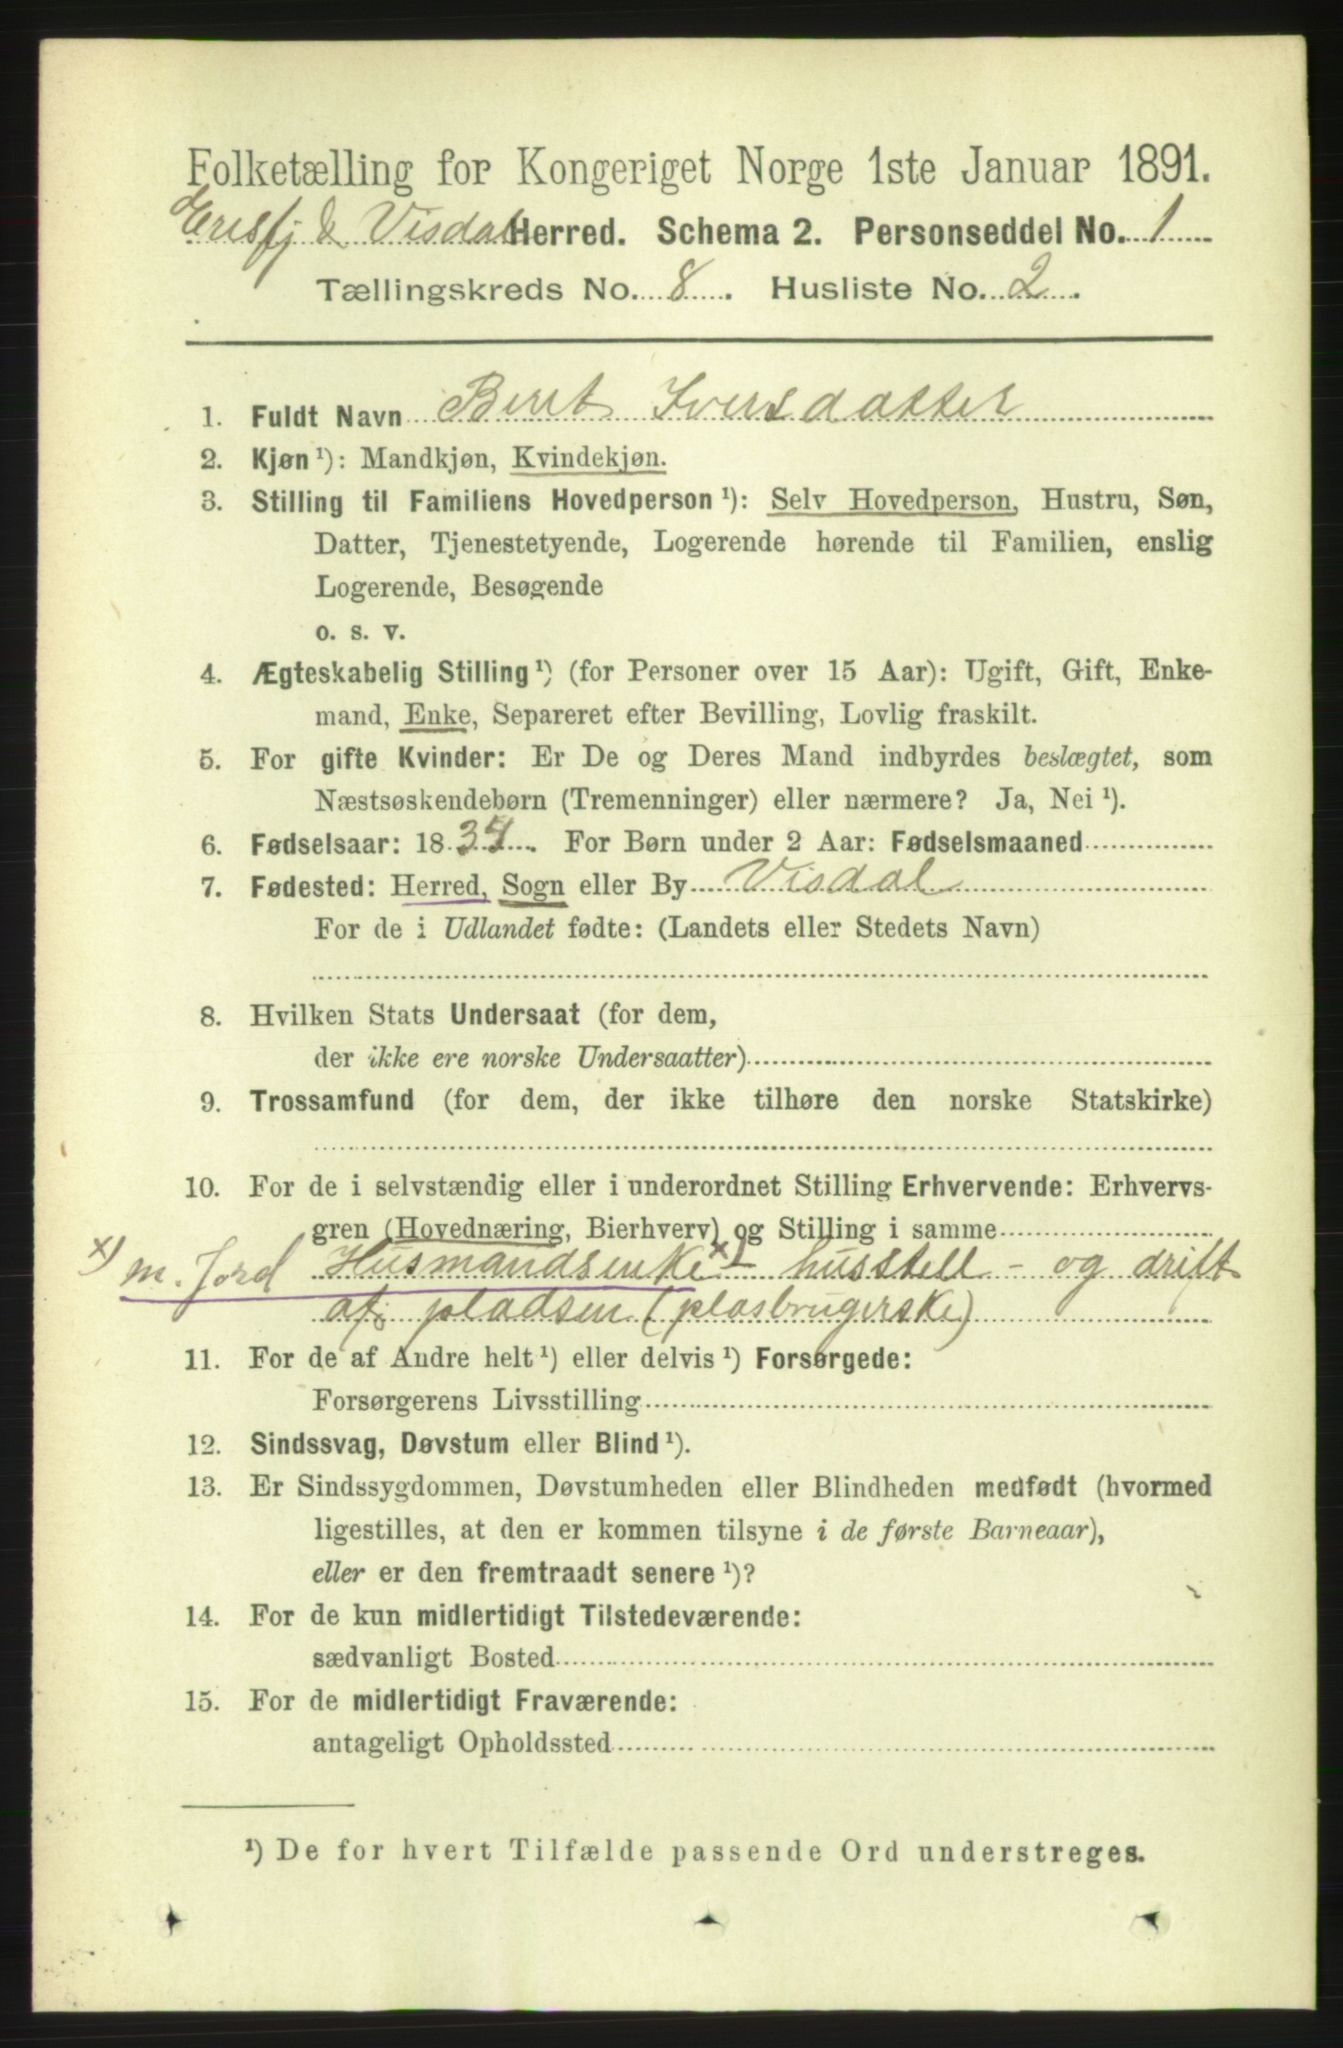 Folketælling for Kongeriget Norge 1ste Januar 1891.
Erisfj & Visdal Herred. Schema 2. Personseddel No. 1
Tællingskreds No. 8. Husliste No. 2.
1. Fuldt Navn Berit Iversdatter
2. Kjøn ¹): Mandkjøn, Kvindekjøn.
3. Stilling til Familiens Hovedperson ¹): Selv Hovedperson, Hustru, Søn,
Datter, Tjenestetyende, Logerende hørende til Familien, enslig
Logerende, Besøgende
o. s. v.
4. Ægteskabelig Stilling ¹) (for Personer over 15 Aar): Ugift, Gift, Enke-
mand, Enke, Separeret efter Bevilling, Lovlig fraskilt.
5. For gifte Kvinder: Er De og Deres Mand indbyrdes beslægtet, som
Næstsøskendebørn (Tremenninger) eller nærmere? Ja, Nei ¹).
6. Fødselsaar: 1834. For Børn under 2 Aar: Fødselsmaaned
7. Fødested: Herred, Sogn eller By Visdal
For de i Udlandet fødte: (Landets eller Stedets Navn)
8. Hvilken Stats Undersaat (for dem,
der ikke ere norske Undersaatter)
9. Trossamfund (for dem, der ikke tilhøre den norske Statskirke)
10. For de i selvstændig eller i underordnet Stilling Erhvervende: Erhvervs-
gren (Hovednæring, Bierhverv) og Stilling i samme
x) m. Jord Husmandsenke x) husstell - og drift
af pladsen (plasbrugerske)
11. For de af Andre helt ¹) eller delvis ¹) Forsørgede:
Forsørgerens Livsstilling
12. Sindssvag, Døvstum eller Blind ¹).
13. Er Sindssygdommen, Døvstumheden eller Blindheden medfødt (hvormed
ligestilles, at den er kommen tilsyne i de første Barneaar),
eller er den fremtraadt senere ¹)?
14. For de kun midlertidigt Tilstedeværende:
sædvanligt Bosted
15. For de midlertidigt Fraværende:
antageligt Opholdssted
¹) De for hvert Tilfælde passende Ord understreges.